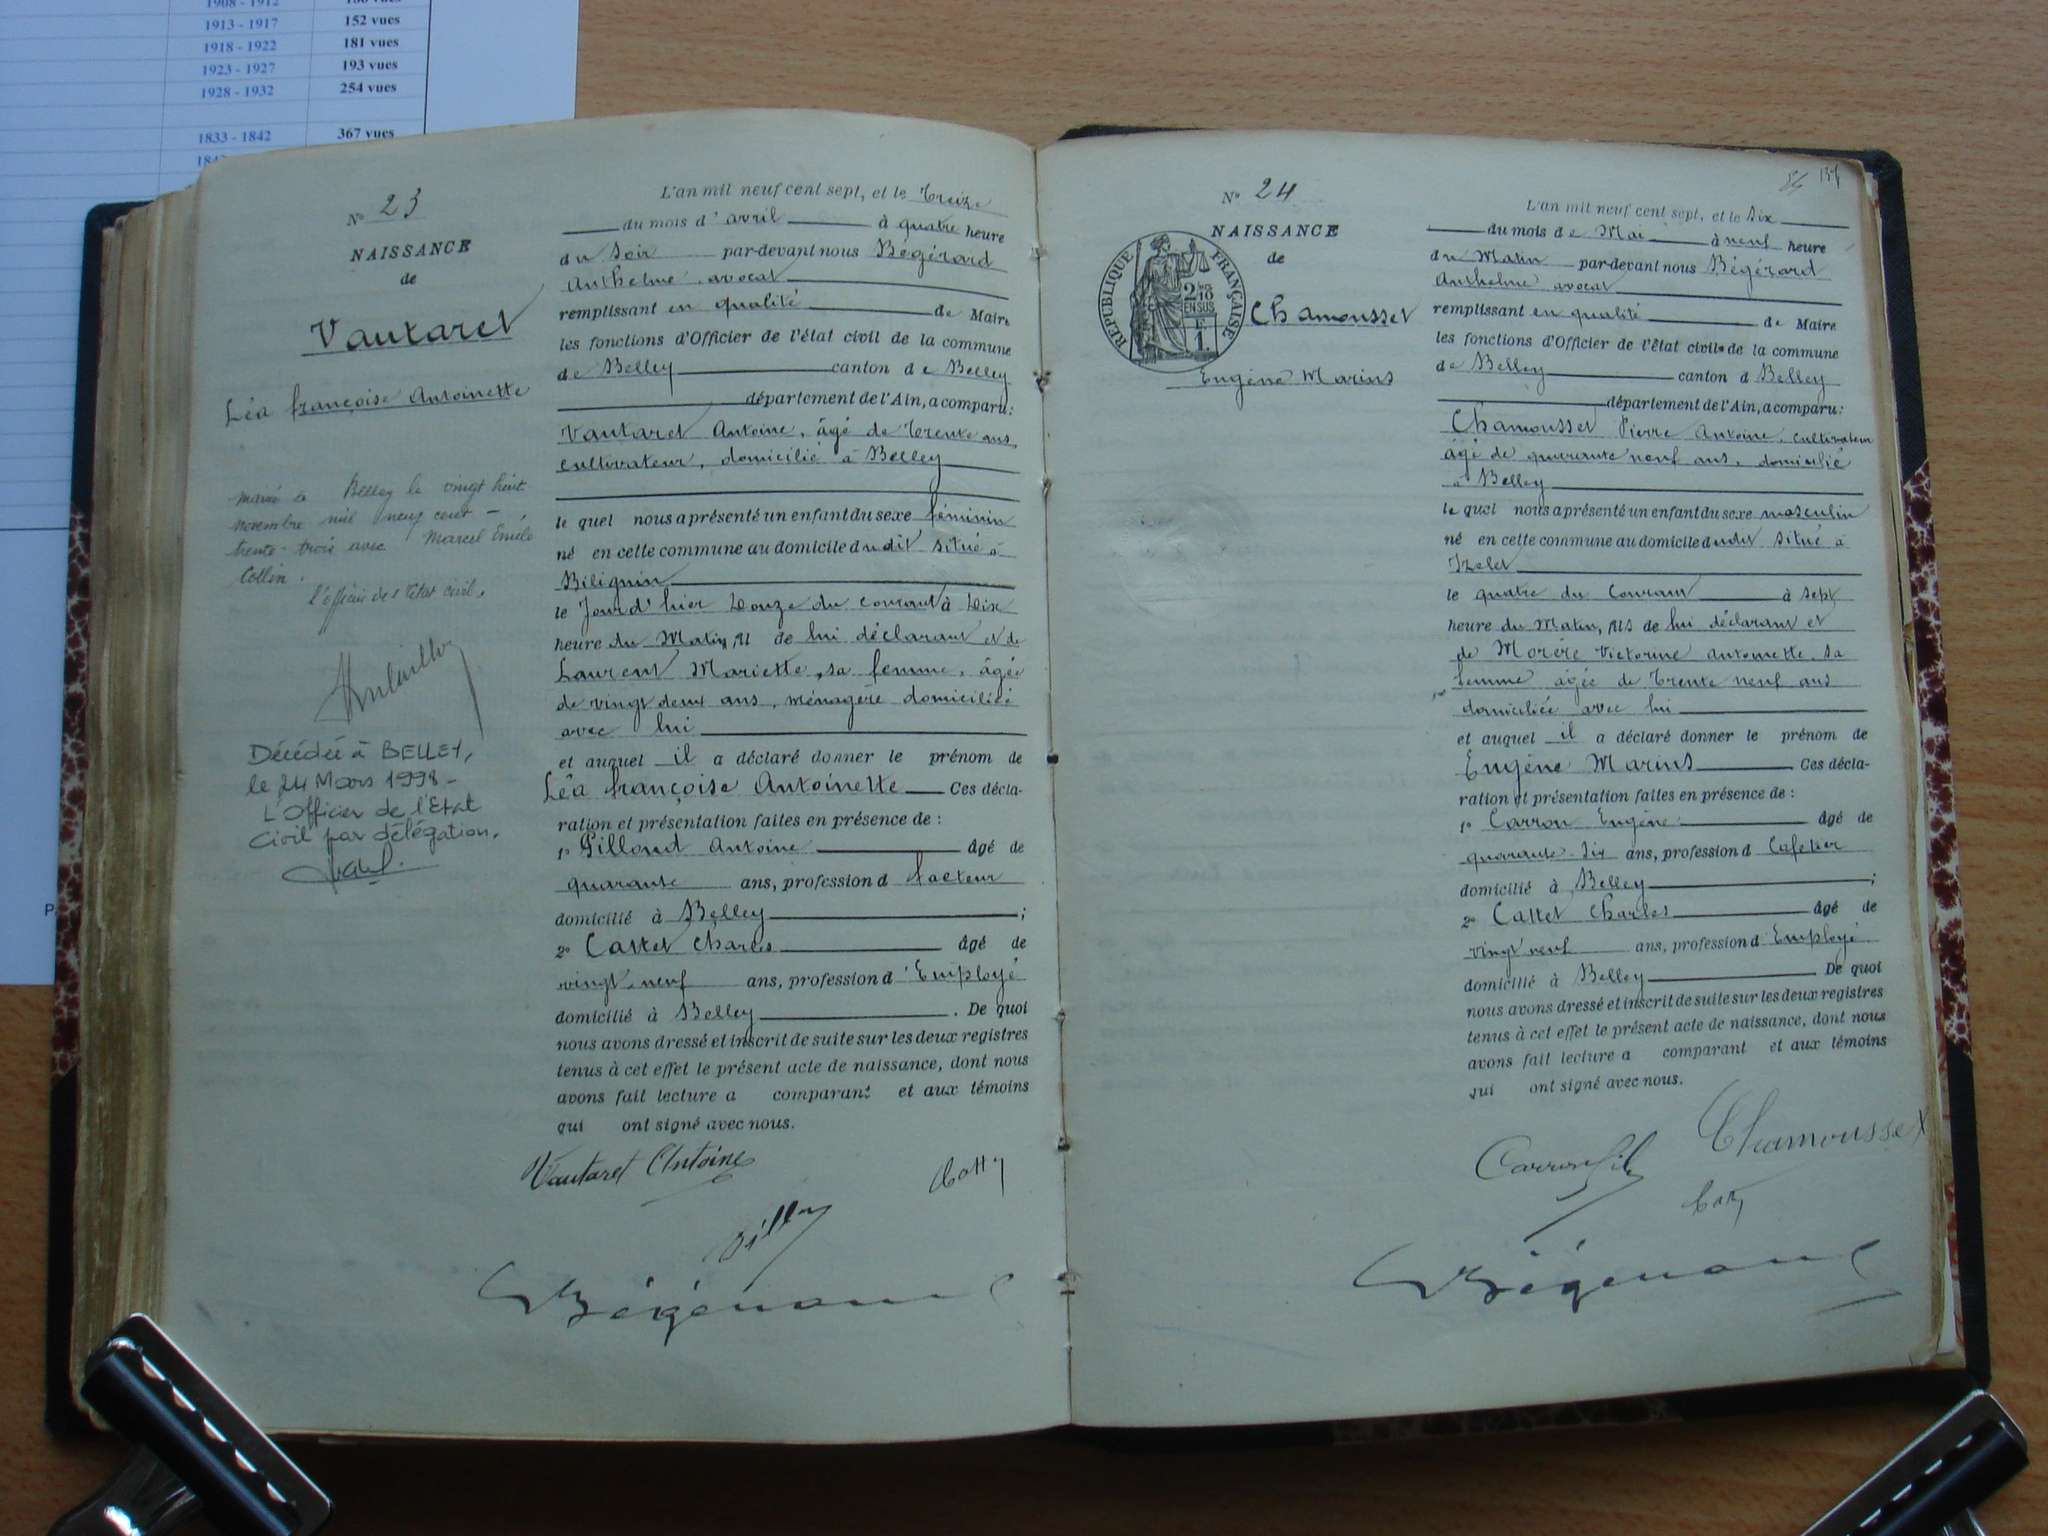 1908 - 1912
1913 - 1917 152 vues
1918 - 1922 181 vues
1923 - 1927 193 vues
1928 - 1932 254 vues
1833 - 1842 367 vues
N° 23
NAISSANCE
de
Vautaret
Léa françoise Antoinette
marié à Belley le vingt huit
novembre mil neuf cent -
trente-trois avec Marcel Emile
Collin.
L'officier de l'Etat civil,
Décédée à BELLEY,
le 24 Mars 1998 -
L'Officier de l'Etat
Civil par délégation,
L'an mil neuf cent sept, et le treize
du mois d' avril à quatre heure
du Soir par-devant nous Bégérard
Anthelme, avocat
remplissant en qualité de Maire
les fonctions d'Officier de l'état civil de la commune
de Belley canton de Belley
département de l'Ain, a comparu:
Vautaret Antoine, âgé de trente ans,
cultivateur, domicilié à Belley
le quel nous a présenté un enfant du sexe féminin
né en cette commune au domicile dudit situé à
Bilignin
le Jour d'hier Douze du courant à Dix
heure du Matin, de lui déclarant et de
Laurent Mariette, sa femme, âgée
de vingt deux ans, ménagère domiciliée
avec lui
et auquel il a déclaré donner le prénom de
Léa françoise Antoinette Ces décla-
ration et présentation faites en présence de :
1° Pilloud Antoine âgé de
quarante ans, profession d facteur
domicilié à Belley ;
2° Cattet Charles âgé de
vingt-neuf ans, profession d'Employé
domicilié à Belley . De quoi
nous avons dressé et inscrit de suite sur les deux registres
tenus à cet effet le présent acte de naissance, dont nous
avons fait lecture a comparant et aux témoins
qui ont signé avec nous.
Vautaret Antoine
Bégérard
N° 24
NAISSANCE
de
REPUBLIQUE FRANÇAISE
2/10
EN SUS
F
1.
Chamousset
Eugène Marius
L'an mil neuf cent sept, et le six
du mois de Mai à neuf heure
du Matin par-devant nous Bégérard
Anthelme avocat
remplissant en qualité de Maire
les fonctions d'Officier de l'état civil de la commune
de Belley canton d Belley
département de l'Ain, a comparu:
Chamousset Pierre Antoine, cultivateur
âgé de quarante neuf ans, domicilié
à Belley
le quel nous a présenté un enfant du sexe masculin
né en cette commune au domicile dudit situé à
le quatre du Courant à sept
heure du Matin, fils de lui déclarant et
de Morère Victorine Antoinette sa
femme âgée de trente neuf ans
domiciliée avec lui
et auquel il a déclaré donner le prénom de
Eugène Marius Ces décla-
ration et présentation faites en présence de :
1° Carron Eugène âgé de
quarante-six ans, profession d Cafetier
domicilié à Belley ;
2° Cattet Charles âgé de
vingt neuf ans, profession d'Employé
domicilié à Belley De quoi
nous avons dressé et inscrit de suite sur les deux registres
tenus à cet effet le présent acte de naissance, dont nous
avons fait lecture a comparant et aux témoins
qui ont signé avec nous.
Chamousset
Carron fils
Bégérard